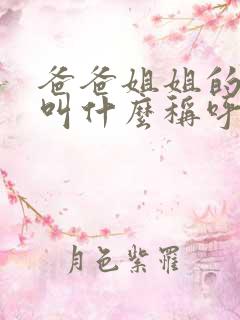 爸爸姐姐的
叫什麼稱呼
月色紫羅